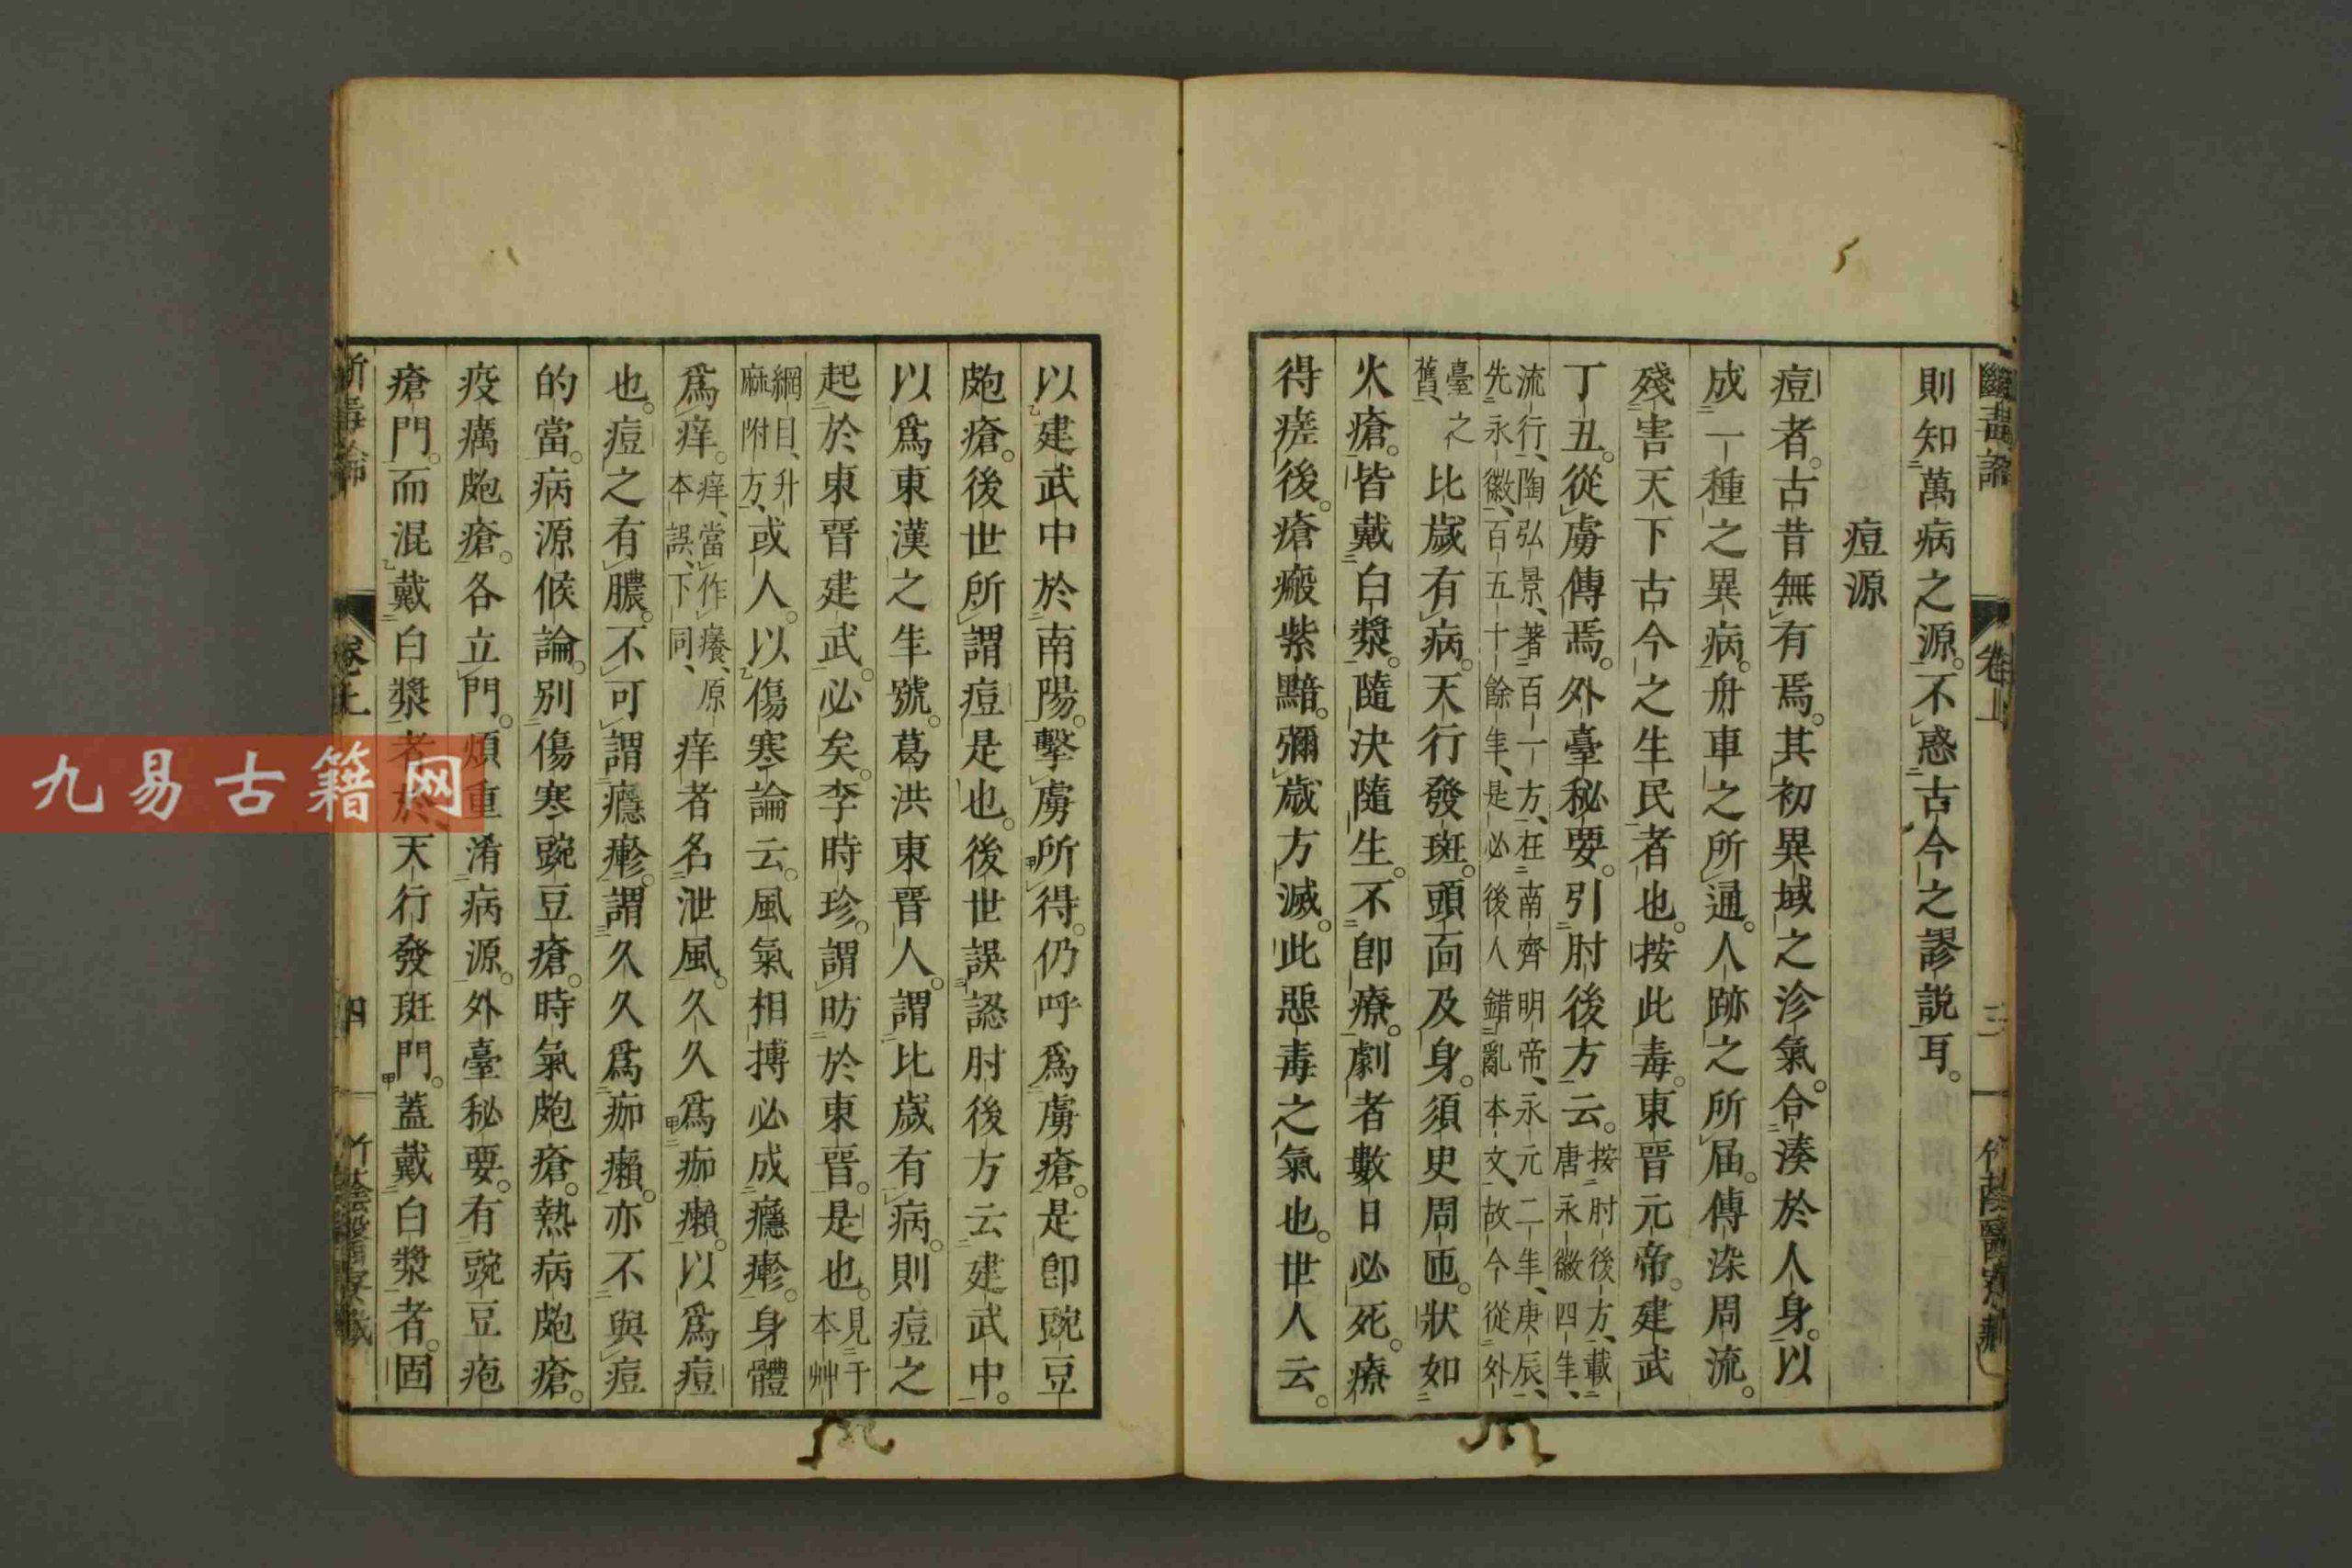 則知萬病之源。不惑古今之謬說耳。
痘源
痘者。古昔無有焉。其初異域之沴氣。合湊於人身。以
成一種之異病。舟車之所通。人跡之所屆。傳染周流。
殘害天下古今之生民者也。按此毒。東晉元帝。建武
丁丑。從虜傳焉。外臺秘要。引肘後方云。按肘後方、載唐永徽四年、
流行、陶弘景、著百一方、在南齊明帝、永元二年、庚辰、先永徽、百五十餘年、是必後人錯亂本文、故今從外
臺之舊、比歲有病。天行發斑。頭面及身。須史周匝。狀如
火瘡。皆戴白漿。隨決隨生。不卽療。劇者數日必死。療
得瘥後。瘡瘢紫黯。彌歲方滅。此惡毒之氣也。世人云。
以建武中於南陽。擊虜所得。仍呼爲虜瘡。是卽豌豆
皰瘡。後世所謂痘是也。後世誤認肘後方云建武中。
以爲東漢之年號。葛洪東晉人。謂比歲有病。則痘之
起於東晉建武。必矣。李時珍。謂昉於東晉。是也。見于本艸
綱目、升麻附方、或人。以傷寒論云。風氣相搏必成癮瘮。身體
爲痒。痒、當作癢、原本誤、下同、痒者名泄風。久久爲痂癩。以爲痘
也。痘之有膿。不可謂癮瘮。謂久久爲痂癩。亦不與痘
的當。病源候論。別傷寒豌豆瘡。時氣皰瘡。熱病皰瘡。
疫癘皰瘡。各立門。煩重淆病源。外臺秘要。有豌豆疱
瘡門。而混戴白漿者於天行發斑門。蓋戴白漿者。固
斷毒論
卷上
三
卷上
四
九易古籍网